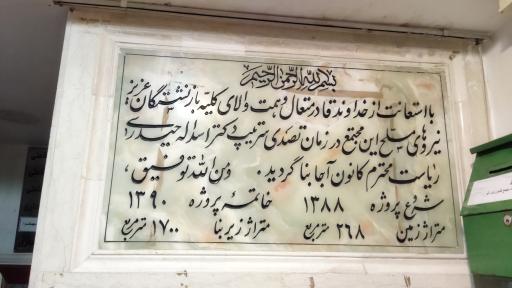 بسم الله الرحمن الرحیم
با استعانت از خداوند قادر متعال و همت والای کلیه بازنشستگان عزیز
نیروی های مسلح این مجتمع در زمان تصدی سرتیپ دکتر اسداله حیدری
ریاست محترم کانون آجا بنا گردید. ومن الله توفیق،
شروع پروژه ۱۳۸۸ خاتمه پروژه ۱۳۹۰
متراژ زمین ۲۶۸ متر مربع متراژ زیربنا ۱۷۰۰ متر مربع